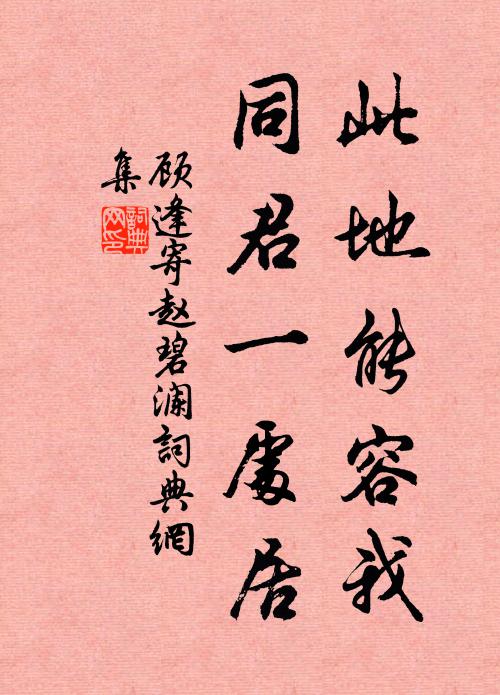 此地能容我
同君一處居
顾逢寄赵碧澜詞典網
集
詞典
网印